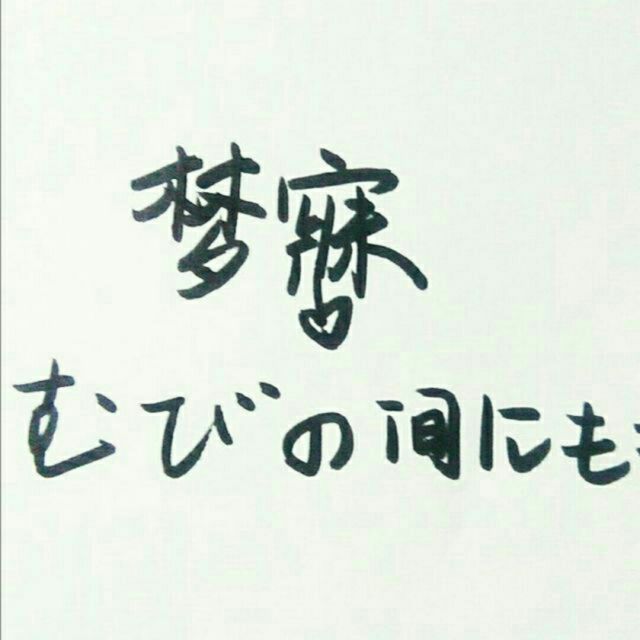 梦寐
むびの間にも